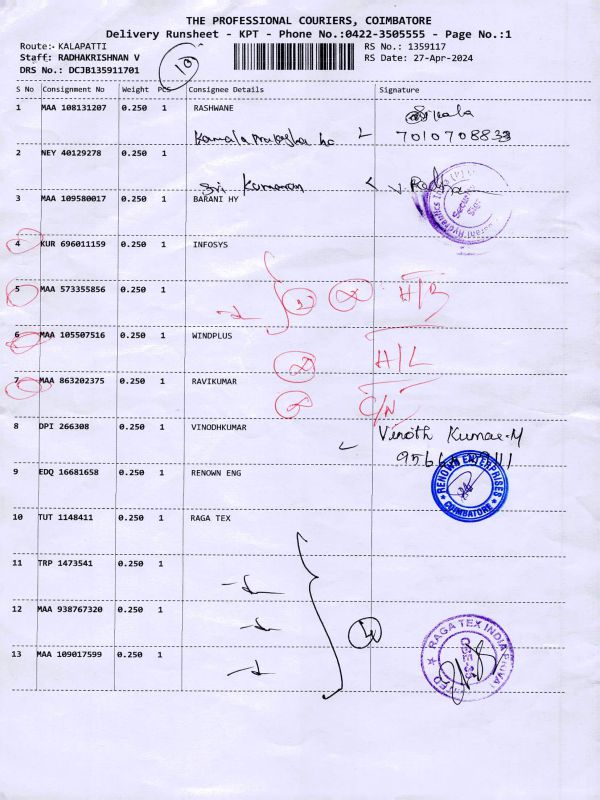 THE PROFESSIONAL COURIERS, COIMBATORE
Delivery Runsheet - KPT - Phone No.:0422-3505555 - Page No.:1
Route:- KALAPATTI RS No.: 1359117
Staff: RADHAKRISHNAN V RS Date: 27-Apr-2024
DRS No.: DCJB135911701
10
S No Consignment No Weight PCS Consignee Details Signature
1 MAA 108131207 0.250 1 RASHWANE
7010708833
2 NEY 40129278 0.250 1
Sri Kumaran
3 MAA 109580017 0.250 1 BARANI HY
4 KUR 696011159 0.250 1 INFOSYS
5 MAA 573355856 0.250 1
H/B
6 MAA 105507516 0.250 1 WINDPLUS
H/L
7 MAA 863202375 0.250 1 RAVIKUMAR
C/N
8 DPI 266308 0.250 1 VINODHKUMAR
Vinoth Kumar-M
9 EDQ 16681658 0.250 1 RENOWN ENG
RENOWN ENTERPRISES
COIMBATORE
10 TUT 1148411 0.250 1 RAGA TEX
11 TRP 1473541 0.250 1
12 MAA 938767320 0.250 1
RAGA TEX INDIA
CBE-35
13 MAA 109017599 0.250 1